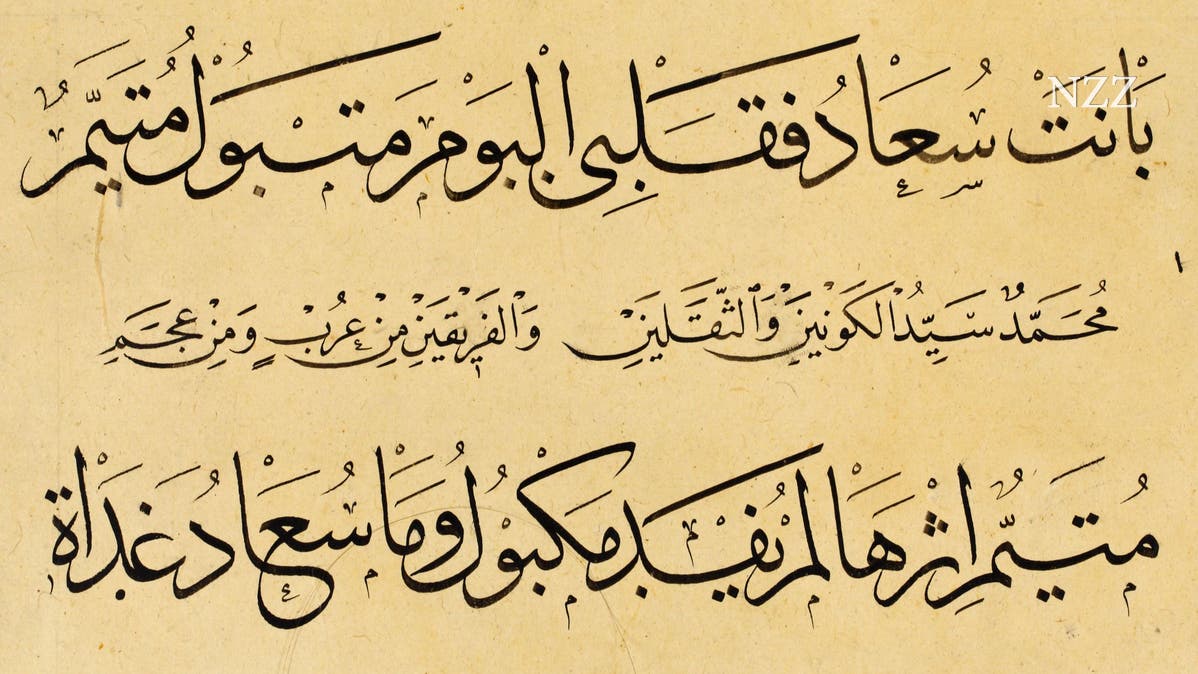 NZZ
بَانَتْ سُعَادُ فَقَلْبِي الْيَوْمَ مَتْبُولُ مُتَيَّمٌ
مُحَمَّدٌ سَيِّدُ الْكَوْنَيْنِ وَالثَّقَلَيْنِ وَالْفَرِيقَيْنِ مِنْ عُرْبٍ وَمِنْ عَجَمِ
مُتَيَّمٌ إِثْرَهَا لَمْ يُفْدَ مَكْبُولُ وَمَا سُعَادُ غَدَاةَ